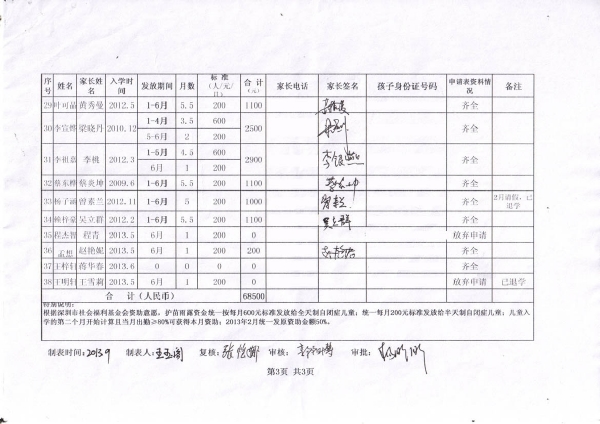 序号 姓名 家长姓名 入学时间 发放期间 月数 标准(人/元/月) 合计(元) 家长电话 家长签名 孩子身份证号码 申请表资料情况 备注
29 叶可晶 黄秀曼 2012.5 1-6月 5.5 200 1100 齐全
30 李宣烨 梁晓丹 2010.12 1-4月 3.5 600 2500 齐全
5-6月 2 200
31 李祖意 李桃 2012.3 1-5月 4.5 600 2900 齐全
6月 1 200
32 蔡东桦 蔡炎坤 2009.6 1-6月 5.5 200 1100 齐全
33 杨子涵 曾素兰 2012.11 1-6月 5 200 1000 齐全 2月请假,已退学
34 赖梓豪 吴立群 2012.2 1-6月 5.5 200 1100 吴立群 齐全
35 程杰智 程青 2013.5 6月 1 200 0 放弃申请
36 孟想 赵艳妮 2013.5 6月 1 200 200 齐全
37 王梓轩 蒋华春 2013.6 0 0 0 0 齐全
38 王明轩 王雪莉 2013.5 6月 1 200 0 放弃申请 已退学
合 计(人民币) 68500
特别说明:
根据深圳市社会福利基金会资助意愿,护苗雨露资金统一按每月600元标准发放给全天制自闭症儿童;统一每月200元标准发放给半天制自闭症儿童;儿童入
学的第二个月开始计算且当月出勤≥80%可获得本月资助;2013年2月统一发原资助金额50%。
制表时间:2013.9 制表人: 复核: 审核: 审批:
第3页 共3页